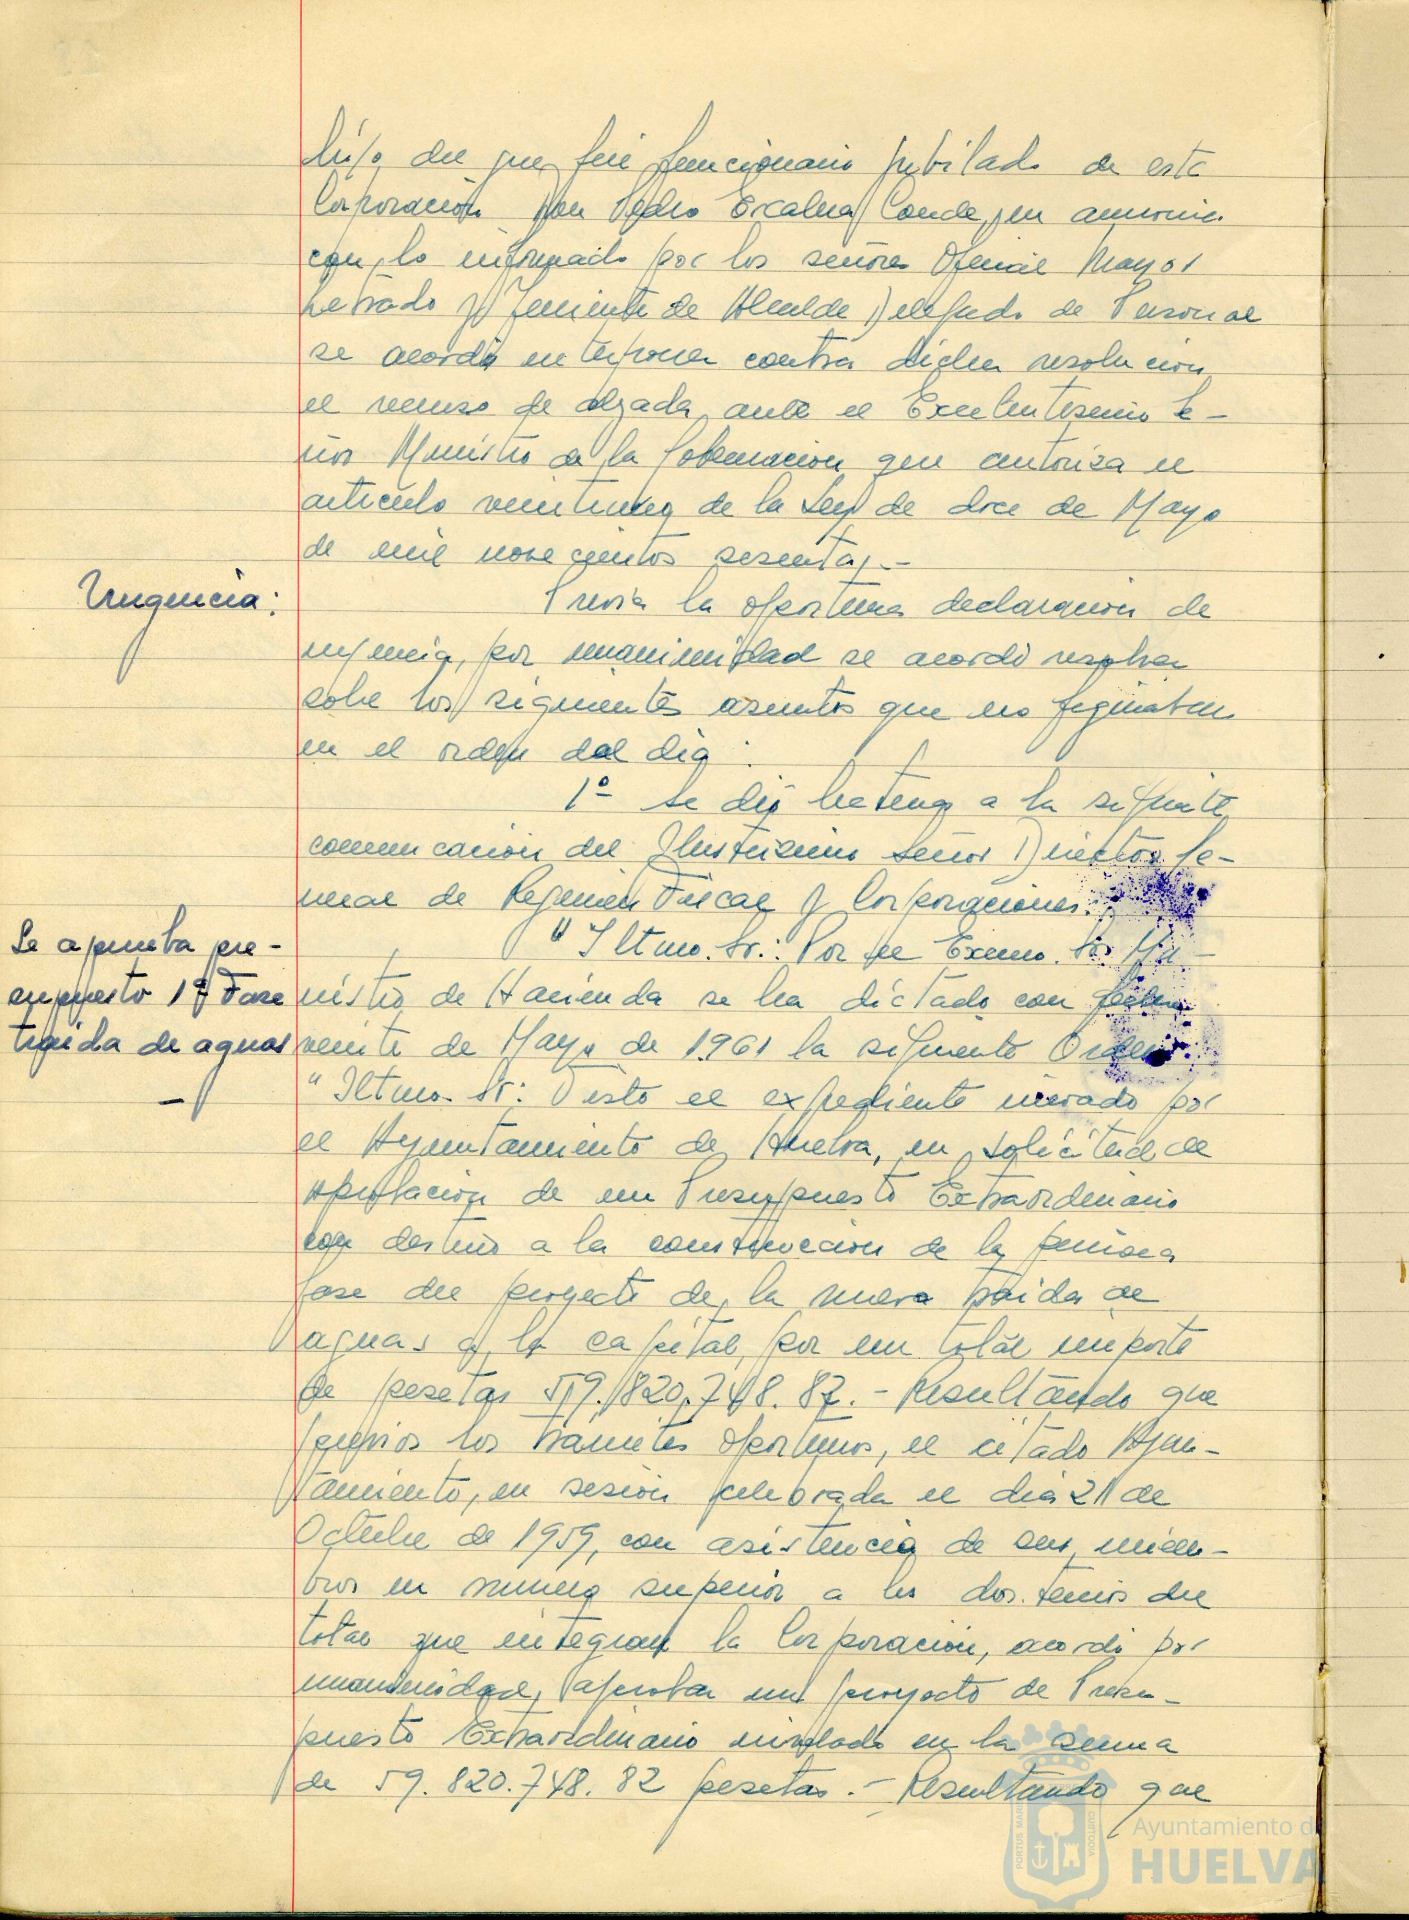 hijo del que fué funcionario jubilado de esta
Corporación Don Pedro Escalera Conde, en armonia
con lo informado por los señores Oficial Mayor
Letrado y Teniente de Alcalde Delegado de Personal
se acordó interponer contra dicha resolución
el recurso de alzada ante el Excelentisimo Se-
ñor Ministro de la Gobernacion que autoriza el
articulo veintinueve de la Ley de doce de Mayo
de mil novecientos sesenta.-
Urgencia:
Previa la oportuna declaración de
urgencia, por unanimidad se acordó resolver
sobre los siguientes asuntos que no figuraban
en el orden del dia:
1º Se dió lectura a la siguiente
comunicación del Ilustrisimo Señor Director Ge-
neral de Regimen Fiscal y Corporaciones:
Se aprueba pre-
supuesto 1ª Fase
traida de aguas
"Iltmo. Sr.: Por el Excmo. Sr. Mi-
nistro de Hacienda se ha dictado con fecha
veinte de Mayo de 1961 la siguiente Orden
"Iltmo. Sr: Visto el expediente incoado por
el Ayuntamiento de Huelva, en solicitud de
aprobación de un Presupuesto Extraordinario
con destino a la construcción de la primera
fase del proyecto de la nueva traida de
aguas a la capital, por un total importe
de pesetas 59.820.748.82.- Resultando que
previos los tramites oportunos, el citado Ayun-
tamiento, en sesión celebrada el dia 21 de
Octubre de 1959, con asistencia de sus miem-
bros en numero superior a los dos tercios del
total que integran la Corporación, acordó por
unanimidad, aprobar un proyecto de Presu-
puesto Extraordinario nivelado en la suma
de 59.820.748.82 pesetas.- Resultando que
PORTUS MARIS
CUSTODIA
Ayuntamiento d
HUELVA